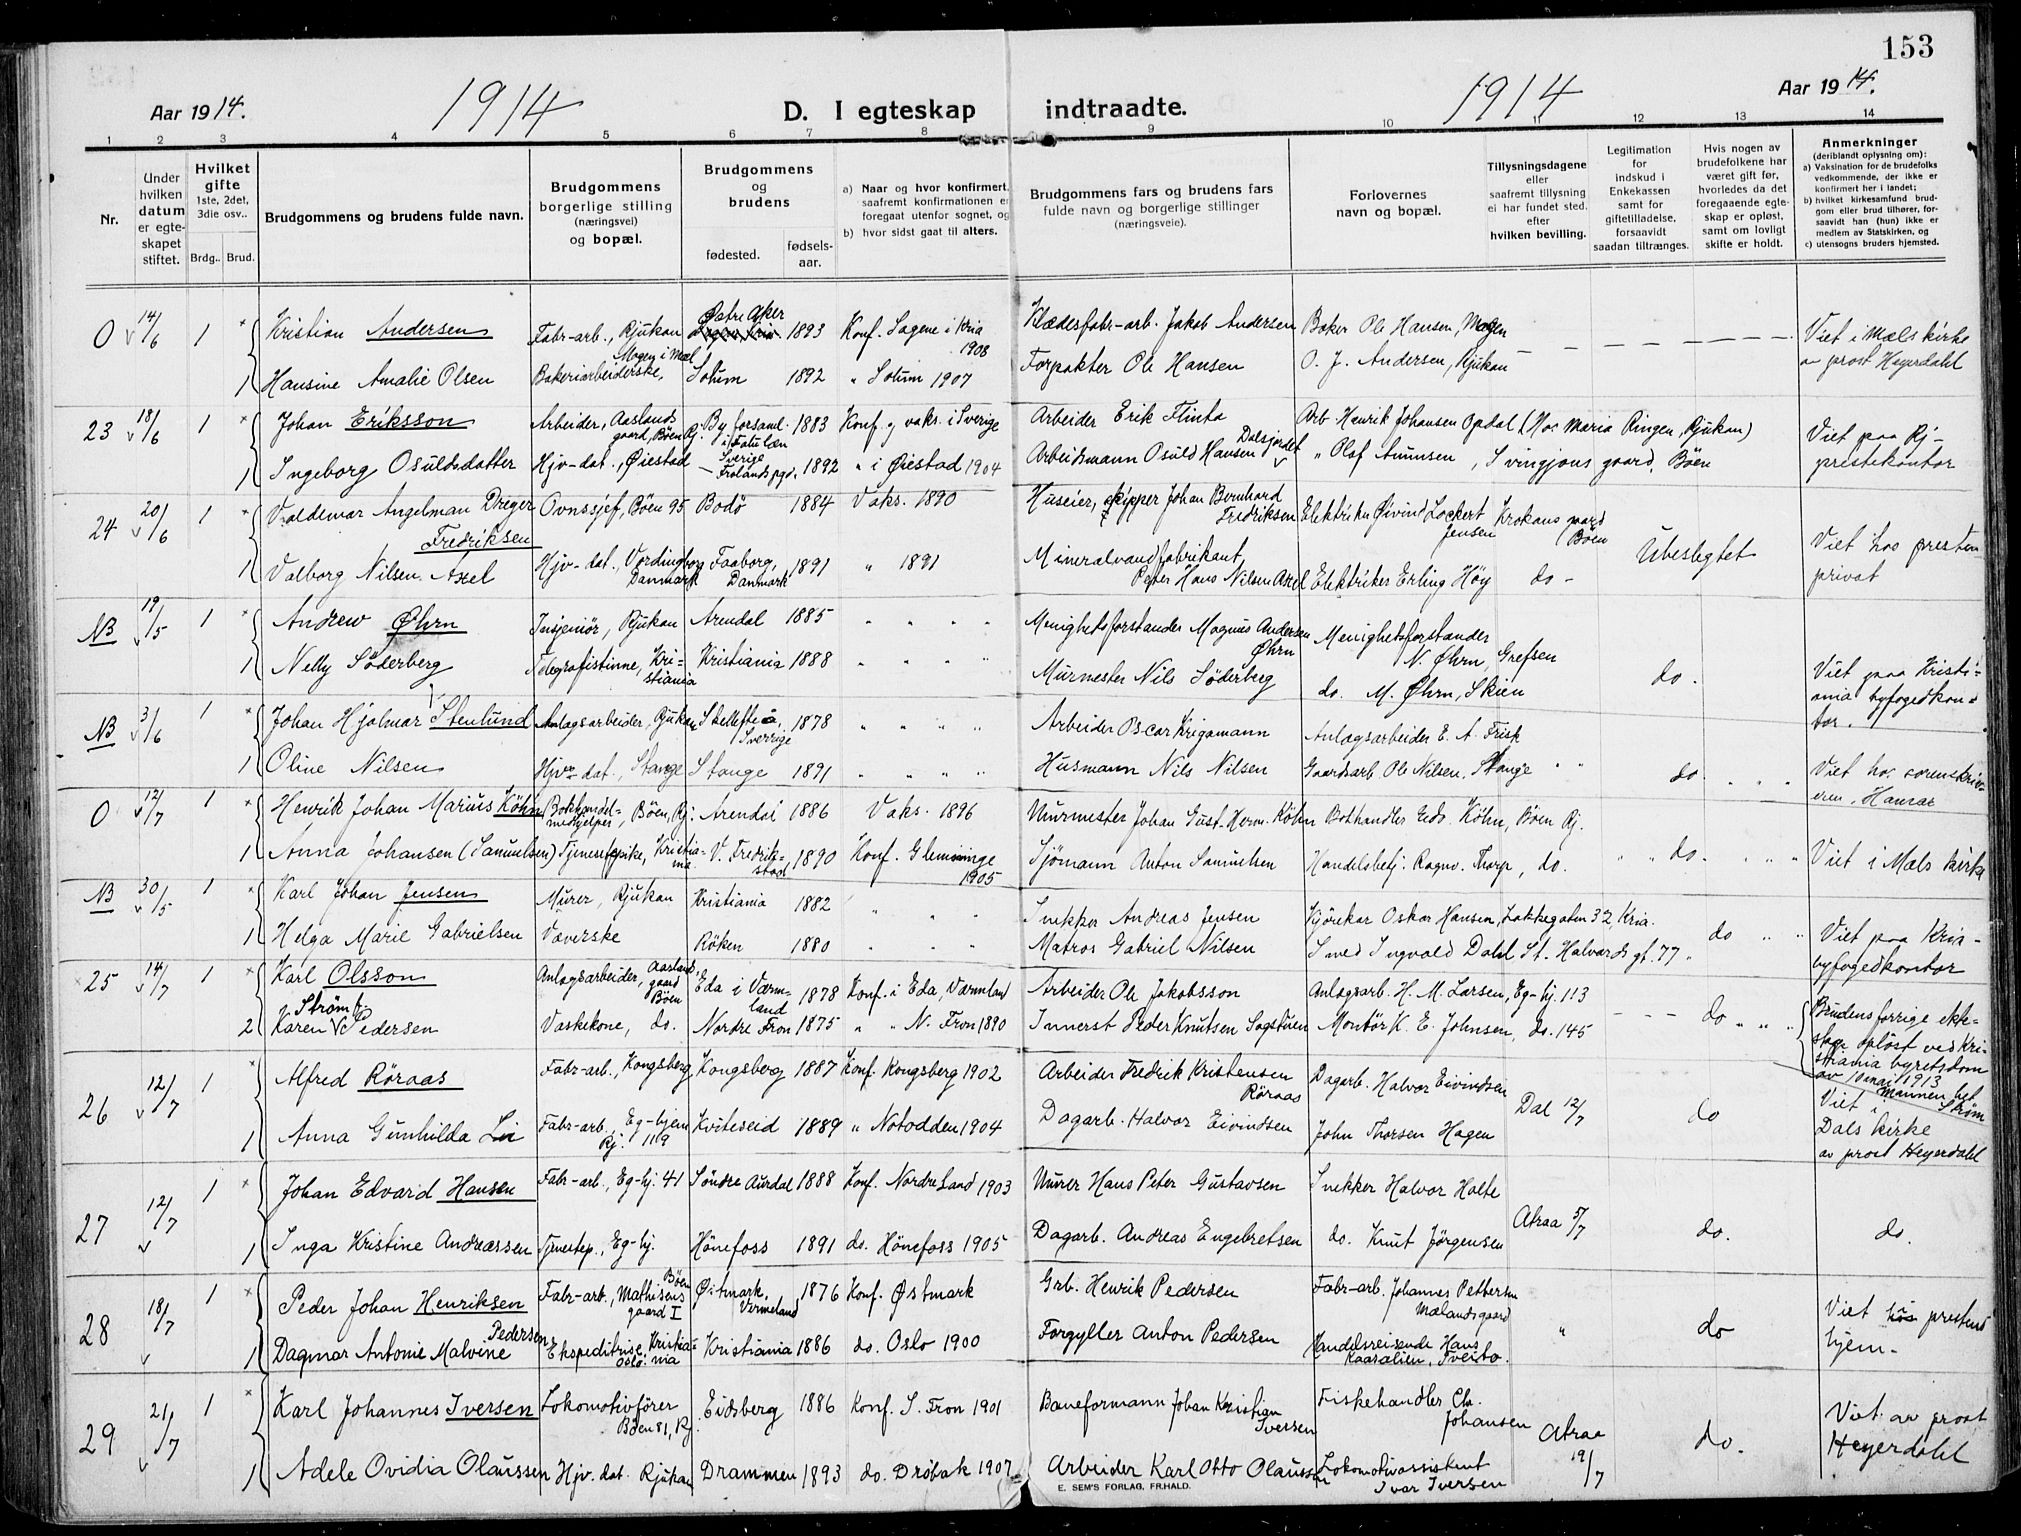 153
Aar 1914.
1914
D. I egteskap indtraadte.
1914
Aar 1914.
1 2 3 4 5 6 7 8 9 10 11 12 13 14
Nr.
Under hvilken datum er egteskapet stiftet.
Hvilket gifte 1ste, 2det, 3die osv.. Brdg.. Brud.
Brudgommens og brudens fulde navn.
Brudgommens borgerlige stilling (næringsvei) og bopæl.
Brudgommens og brudens fødested. fødselsaar.
a) Naar og hvor konfirmert, saafremt konfirmationen er foregaat utenfor sognet, og
b) hvor sidst gaat til alters.
Brudgommens fars og brudens fars fulde navn og borgerlige stillinger (næringsveie).
Forlovernes navn og bopæl.
Tillysningsdagene eller saafremt tillysning ei har fundet sted. efter hvilken bevilling.
Legitimation for indskud i Enkekassen samt for giftetilladelse, forsaavidt saadan tiltrænges.
Hvis nogen av brudefolkene har været gift før, hvorledes da det foregaaende egteskap er opløst, samt om lovligt skifte er holdt.
Anmerkninger (deriblandt oplysning om): a) Vaksination for de brudefolks vedkommende, der ikke er konfirmert her i landet; b) hvilket kirkesamfund brudgom eller brud tilhører, forsaavidt han (hun) ikke er medlem av Statskirken, og c) utensogns bruders hjemsted.
0 14/6 1 Kristian Andersen Fabr-arb., Rjukan Østre Aker 1893 Konf. Sagene i Kria 1908 Klædesfabr-arb. Jakob Andersen Baker Ole Hansen, Mogen Viet i Mæls kirke av prost Heyerdahl
1 Hansine Amalie Olsen Bakeriarbeiderske, Mogen i Mæl Solum 1892 " Solum 1907 Forpakter Ole Hansen O. J. Andersen, Rjukan
23 18/6 1 Johan Eriksson Arbeider, Aaslandsgaard, Böen Rj. By forsaml. i Falu læn Sverige 1883 Konf. og vaks. i Sverige Arbeider Erik Flinta Arb. Henrik Johansen Opdal (Hos Maria Ringen, Rjukan) Viet paa Rj-prestekontor
1 Ingeborg Osuldsdatter Hjv-dat., Øiestad Frolands pgd. 1892 " i Øiestad 1904 Arbeidsmann Osuld Hansen Dalsjordet " Olaf Amunsen, Svingjonsgaard, Böen
24 20/6 1 Valdemar Angelman Dreyer Fredriksen Ovnssjef, Böen 95 Bodö 1884 Vaks. 1890 Huseier, skipper Johan Bernhard Fredriksen Elektriker Øivind Lockert Jensen Krokansgaard Böen Ubeslegtet Viet hos presten privat
1 Valborg Nilsen Axel Hjv-dat., Vordingborg Danmark Faaborg, Danmark 1891 " 1891 Mineralvandfabrikant, Peter Hans Nilsen Axel Elektriker Erling Höy do -
NB 19/5 1 Andrew Øhrn Insjeniör, Rjukan Arendal 1885 " " " " Menighetsforstander Magnus Andersen Øhrn Menighetsforstander N. Øhrn, Grefsen do. Viet paa Kristiania byfogedkontor.
1 Nelly Söderberg Telegrafistinne, Kristiania Kristiania 1888 " " " " Murmester Nils Söderberg do. M. Øhrn, Skien
NB 3/6 1 Johan Hjalmar Stenlund Anlagsarbeider, Rjukan Skellefteå, Sverrige 1878 " " " " Arbeider Oscar Krigsmann Anlagsarbeider E. A. Frisk
1 Oline Nilsen Hjv-dat., Stange Stange 1891 " " " " Husmann Nils Nilsen Gaardsarb. Ole Nilsen, Stange " " do. " " Viet hos sorenskriveren, Hamar
0 12/7 1 Henrik Johan Marius Köhn Bokhandelmedhjelper, Böen, Rj. Arendal 1886 Vaks. 1896 Murmester Johan Gust. Herm. Köhn Bokhandler Edv. Köhn, Böen Rj.
1 Anna Johansen (Samuelsen) Tjenestepike, Kristiania V. Fredrikstad 1890 Konf. Glemminge 1905 Sjömann Anton Samuelsen Handelsbetj. Ragnv. Thorp, do. " " do. " " " Viet i Mæls kirke
NB 30/5 1 Karl Johan Jensen Murer, Rjukan Kristiania 1882 " " " Snekker Andreas Jensen Kjörekar Oskar Hansen, Lakkegaten 32, Kria.
1 Helga Marie Gabrielsen Væverske Röken 1880 " " " Matros Gabriel Nilsen Smed Ingvald Dahl St. Halvards gt. 77 " do " " Viet paa Kria-byfogedkontor
25 14/7 1 Karl Olsson Anlagsarbeider, Aaslandgaard Böen Eda i Værmland 1878 Konf. i Eda, Værmland Arbeider Ole Jakobsson Anlagsarb. H. M. Larsen, Eg-hj. 113 do " " " Brudens forrige ekteskap oplöst ved Kristiania byretsdom av 10 mai 1913 Mannen het Ström
2 Karen Ström f. Pedersen Vaskekone, do. Nordre Fron 1875 " " N. Fron 1890 Innerst Peder Knutsen Sagstuen Montör K. E. Johnsen, do. 145
26 12/7 1 Alfred Röraas Fabr-arb., Kongsberg Kongsberg 1887 Konf. Kongsberg 1902 Arbeider Fredrik Kristensen Röraas Dagarb. Halvor Eivindsen Dal 12/7 do Viet i Dals kirke av prost Heyerdahl
1 Anna Gunhilda Lie Fabr-arb., Eg-hjem Rj. 119 Kviteseid 1889 " Notodden 1904 Dagarb. Halvor Eivindsen John Thorsen Hagen
27 12/7 1 Johan Edvard Hansen Fabr-arb., Eg-hj. 41 Söndre Aurdal 1888 Konf. Nordre Land 1903 Murer Hans Peter Gustavsen Snekker Halvor Holte Atraa 5/7 do. do.
1 Inga Kristine Andreassen Tjenestep., Eg-hj. Hönefoss 1891 do. Hönefoss 1905 Dagarb. Andreas Engebretsen do. Knut Jörgensen
28 18/7 1 Peder Johan Henriksen Fabr-arb., Mathisensgaard I Böen Östmark, Vermeland 1876 Konf. Østmark Grb. Henrik Pedersen Fabr-arb. Johannes Pettersen Mælandsgaard " do Viet hos prestens hjem-
1 Dagmar Antonie Malvine Pedersen Ekspeditrise, Kristiania Oslo: Kristiania 1886 do. Oslo 1900 Forgyller Anton Pedersen Handelsreisende Hans Kaasalien, Tveito.
29 21/7 1 Karl Johannes Iversen Lokomotivförer Böen 81, Rj. Eidsberg 1886 Konf. S. Fron 1901 Baneformann Johan Kristian Iversen Fiskehandler Chr. Johansen Atraa 19/7 do. Viet av prost Heyerdahl
1 Adele Ovidia Olaussen Hjv. dat. Rjukan Drammen 1893 do. Dröbak 1907 Arbeider Karl Otto Olaussen Lokomotivassistent Ivar Iversen
E. SEM'S FORLAG, FR.HALD.